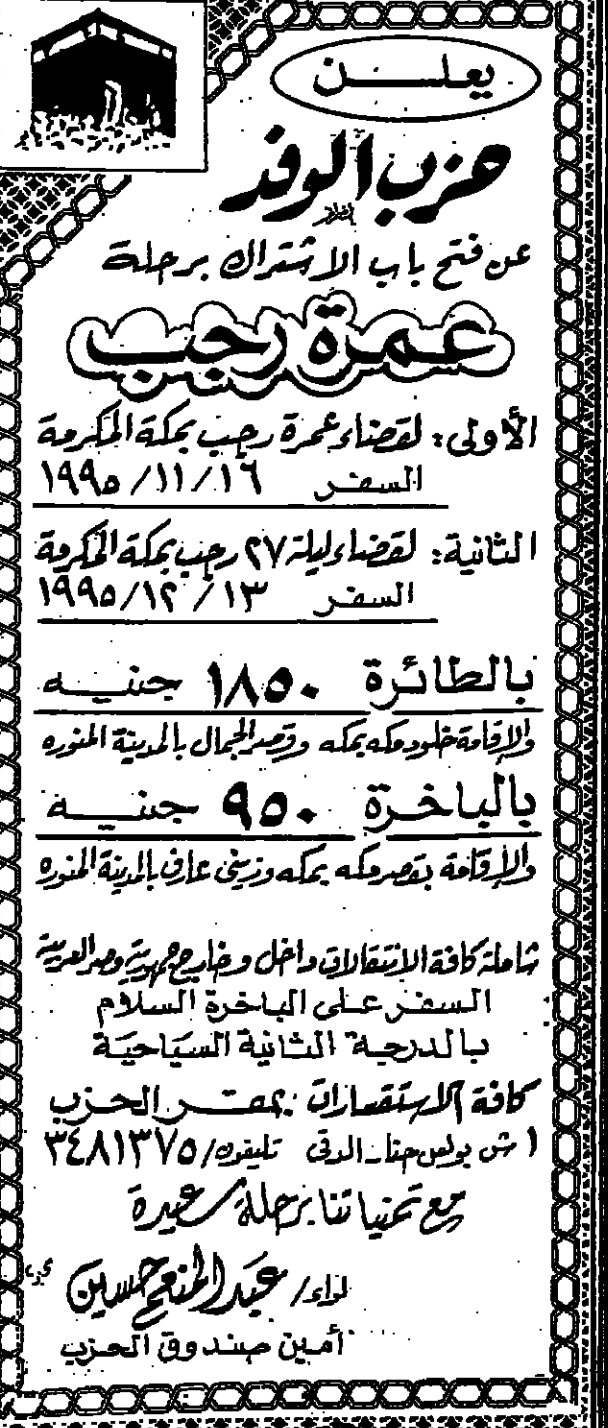 يعلن
حزب الوفد
عن فتح باب الاشتراك برحلة
عمرة رجب
الأولى: لقضاء عمرة رجب بمكة المكرمة
السفر ١٩٩٥/١١/١٦
الثانية: لقضاء ليلة ٢٧ رجب بمكة المكرمة
السفر ١٩٩٥/١٢/١٣
بالطائرة ١٨٥٠ جنيه
والإقامة خلود مكه بمكه وقصر الجمال بالمدينة المنوره
بالباخرة ٩٥٠ جنيه
والإقامة بقصر مكه بمكه وزيني عارف بالمدينة المنوره
شاملة كافة الانتقالات داخل وخارج جمهورية مصر العربية
السفر على الباخرة السلام
بالدرجة الثانية السياحية
كافة الاستفسارات بمقر الحزب
١ ش بولس حنا - الدقى تليفون/ ٣٤٨١٣٧٥
مع تمنياتنا برحلة سعيدة
لواء/ عبد المنعم حسين
أمين صندوق الحزب